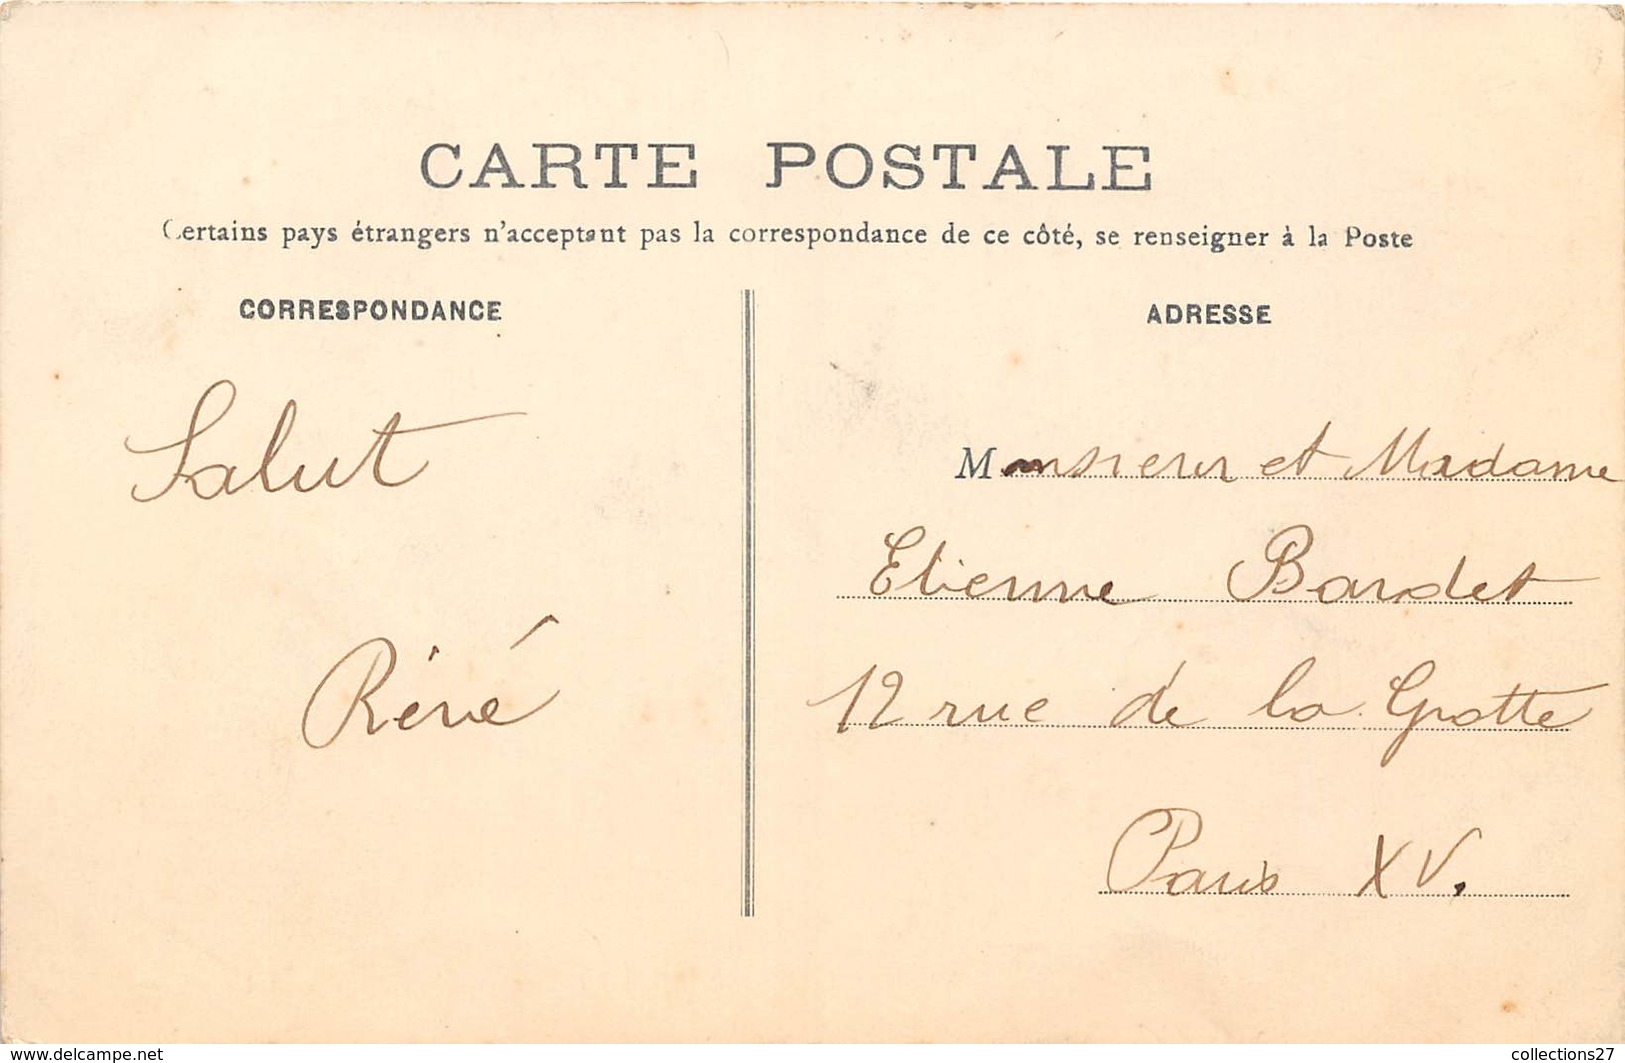 CARTE POSTALE
Certains pays étrangers n'acceptant pas la correspondance de ce côté, se renseigner à la Poste
CORRESPONDANCE
Salut
Réné
ADRESSE
Monsieur et Madame
Etienne Bardet
12 rue de la Grotte
Paris XV.
www.delcampe.net
collections27